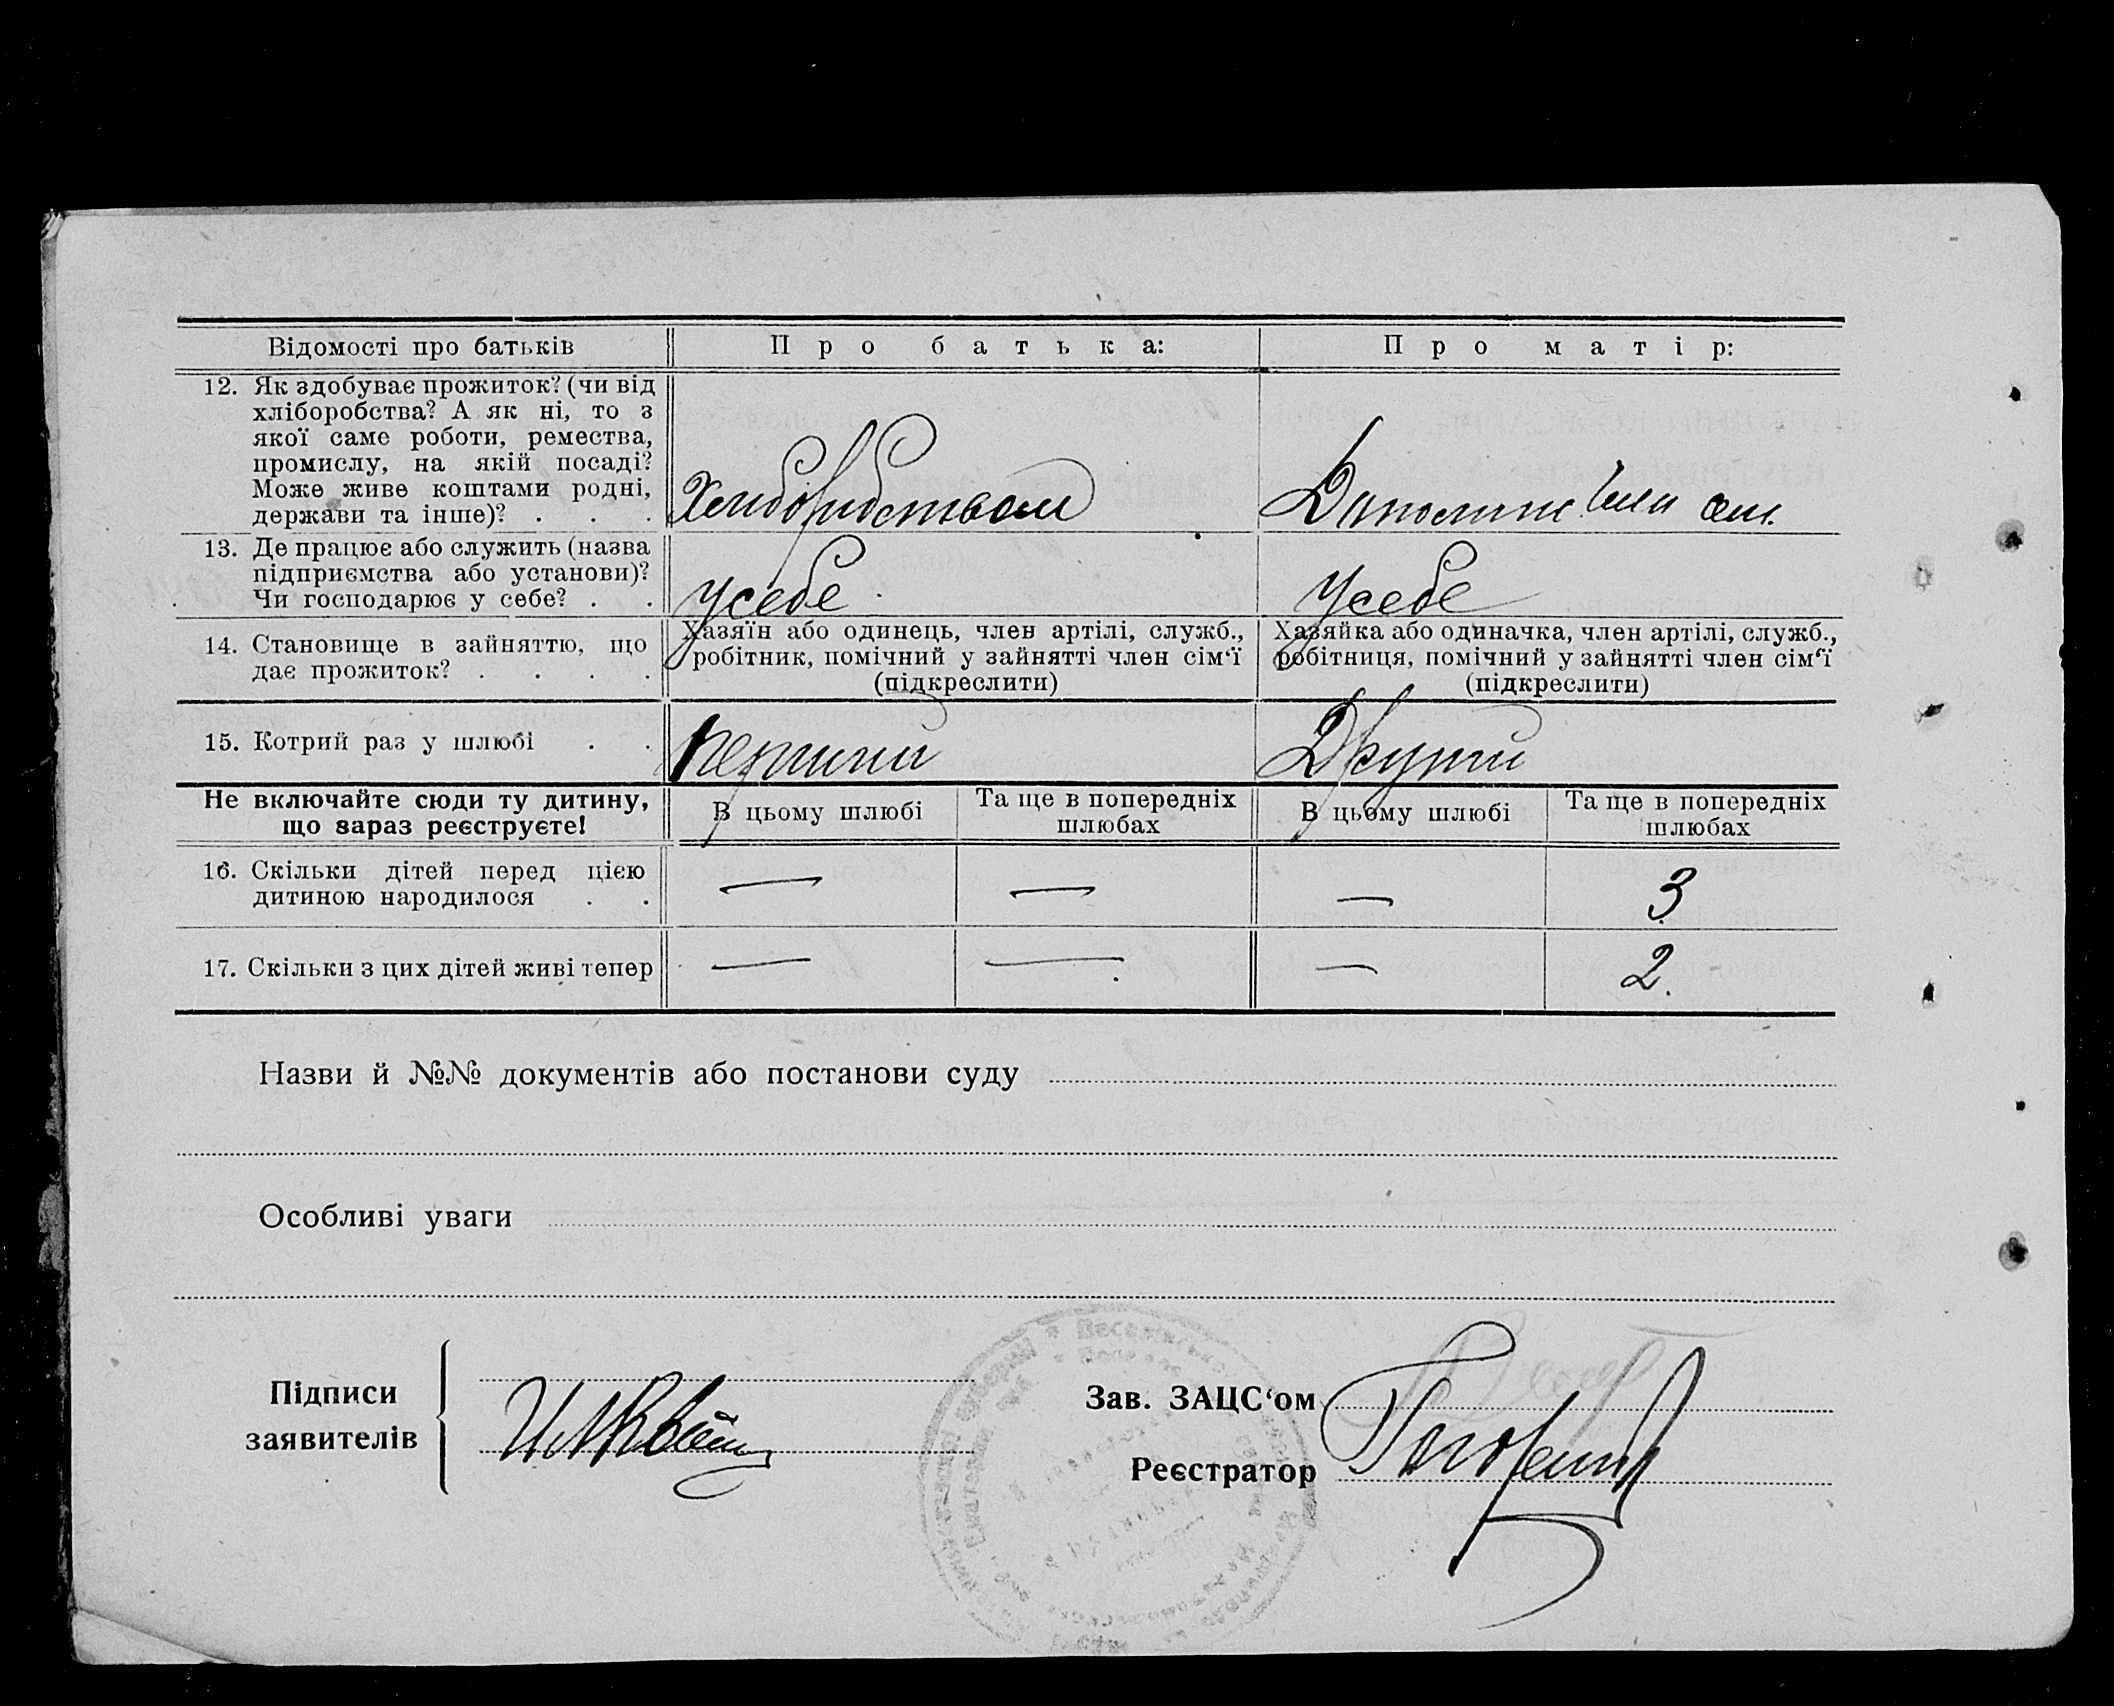 Відомості про батьків
Про батька:
Про матір:
12. Як здобуває прожиток? (чи від
хліборобства? А як ні, то з
якої саме роботи, ремества,
промислу, на якій посаді?
Може живе коштами родні,
держави та інше)? . . .
Хлиборобством
13. Де працює або служить (назва
підприємства або установи)?
Чи господарює у себе? . .
усебе
Усебе
14. Становище в зайняттю, що
дає прожиток? . . . .
Хазяїн або одинець, член артілі, служб.,
робітник, помічний у зайнятті член сім‘ї
(підкреслити)
Хазяйка або одиначка, член артілі, служб.,
робітниця, помічний у зайнятті член сім‘ї
(підкреслити)
15. Котрий раз у шлюбі . .
первий
Другий
Не включайте сюди ту дитину,
що зараз реєструєте!
В цьому шлюбі
Та ще в попередніх
шлюбах
В цьому шлюбі
Та ще в попередніх
шлюбах
16. Скільки дітей перед цією
дитиною народилося . .
— — — 3
17. Скільки з цих дітей живі тепер
— — — 2.
Назви й №№ документів або постанови суду
Особливі уваги
Підписи
заявителів
Зав. ЗАЦС‘ом
Реєстратор